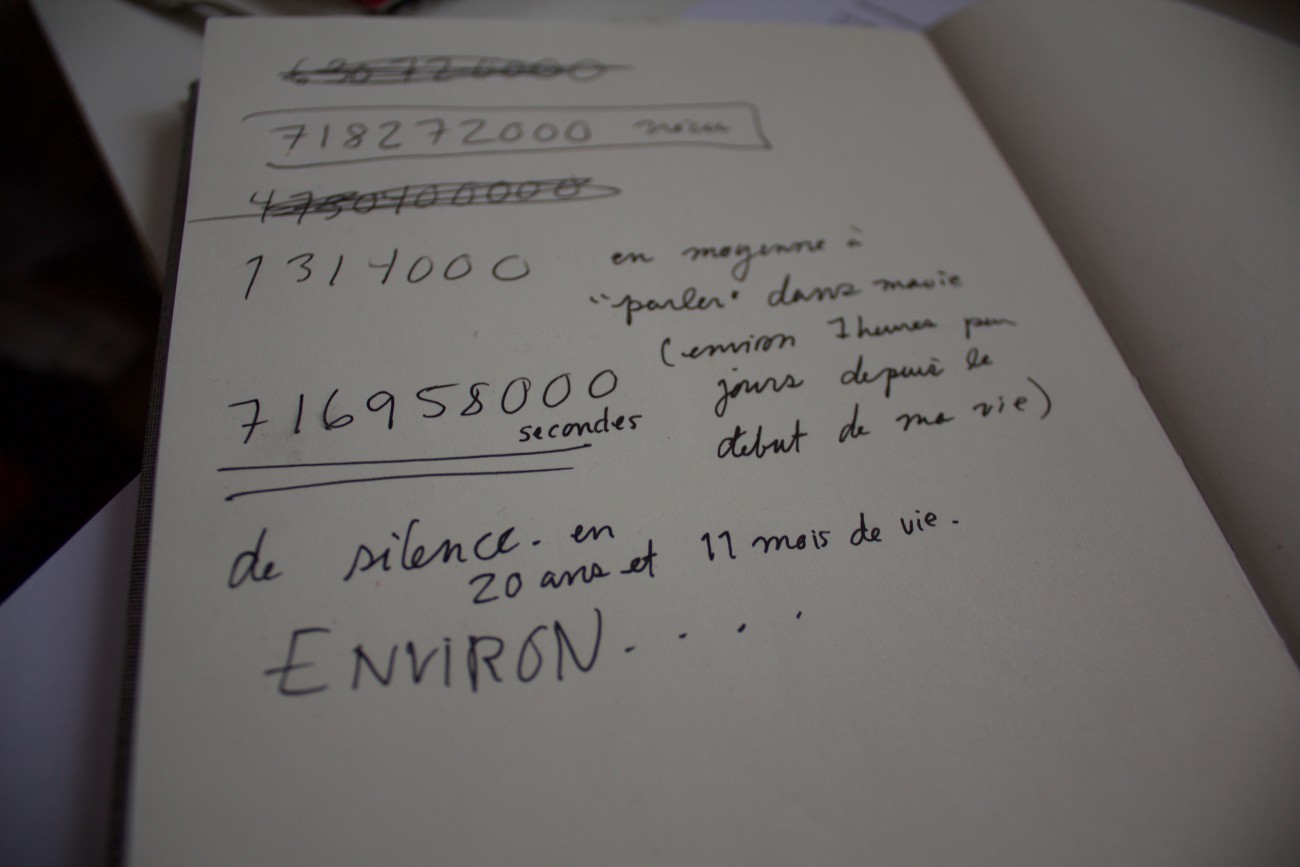 630720000
718272000
1314000 en moyenne à
"parler" dans ma vie
(environ 1 heures par
jours depuis le
debut de ma vie)
716958000
secondes
de silence. en
20 ans et 11 mois de vie.
ENVIRON. . . .